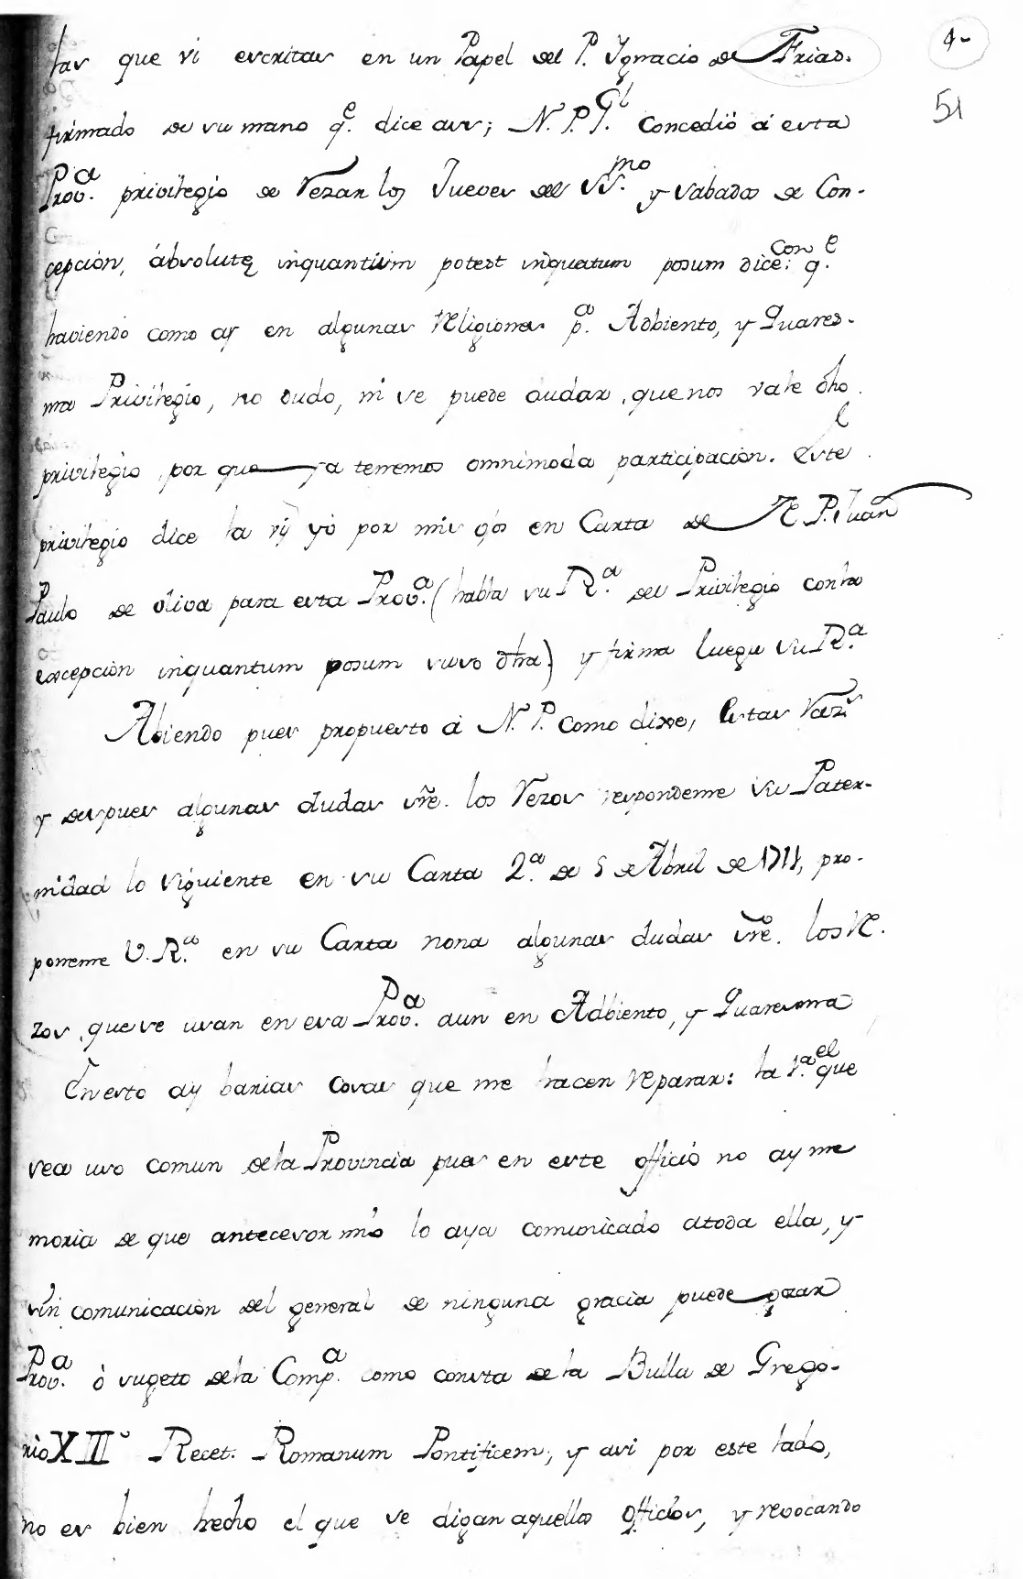 4-
51
tas que vi escritas en un Papel del P. Ygnacio de Frias.
firmado de su mano q.e dice assi; N. P. G.l Concedió á esta
Prov.a privilegio de Rezar los Jueves del SS.mo y Sabados de Con-
cepción, ábsolutę inquantum potest inquatum posum dice: Con q.e
haviendo como ay en algunas Religiones p.a Adbiento, y Quares-
ma Privilegio, no dudo, ni se puede dudar, que nos vale dho
privilegio, por que ya tenemos omnimoda participación. Este
privilegio dice la yo por mis ojos en Carta de N. P. Juan
Paulo de Oliva para esta Prov.a (habla su R.a del Privilegio con la
excepción inquantum posum suso dha) y firma luego su R.a
Abiendo pues propuesto á N. P. como dixe, Estas Raz.s
y despues algunas dudas sre. los Rezos respondeme su Pater-
nidad lo siguiente en su Carta 2.a de 5 de Abril de 1711, pro-
poneme V. R.a en su Carta nona algunas dudas sre. los Re-
zos, que se usan en esa Prov.a aun en Adbiento, y Quaresma
En esto ay barias cosas que me hacen Reparar: la 1.a el que
sea uso comun de la Provincia pues en este officio no ay me
moria de que antecesor mio lo aya comunicado a toda ella, y
sin comunicación del general de ninguna gracia puede gozar
Prov.a ò sugeto de la Comp.a como consta de la Bulla de Grego-
rio XIII° Recet. Romanum Pontificem, y asi por este lado,
no es bien hecho el que se digan aquellos Officios, y revocando